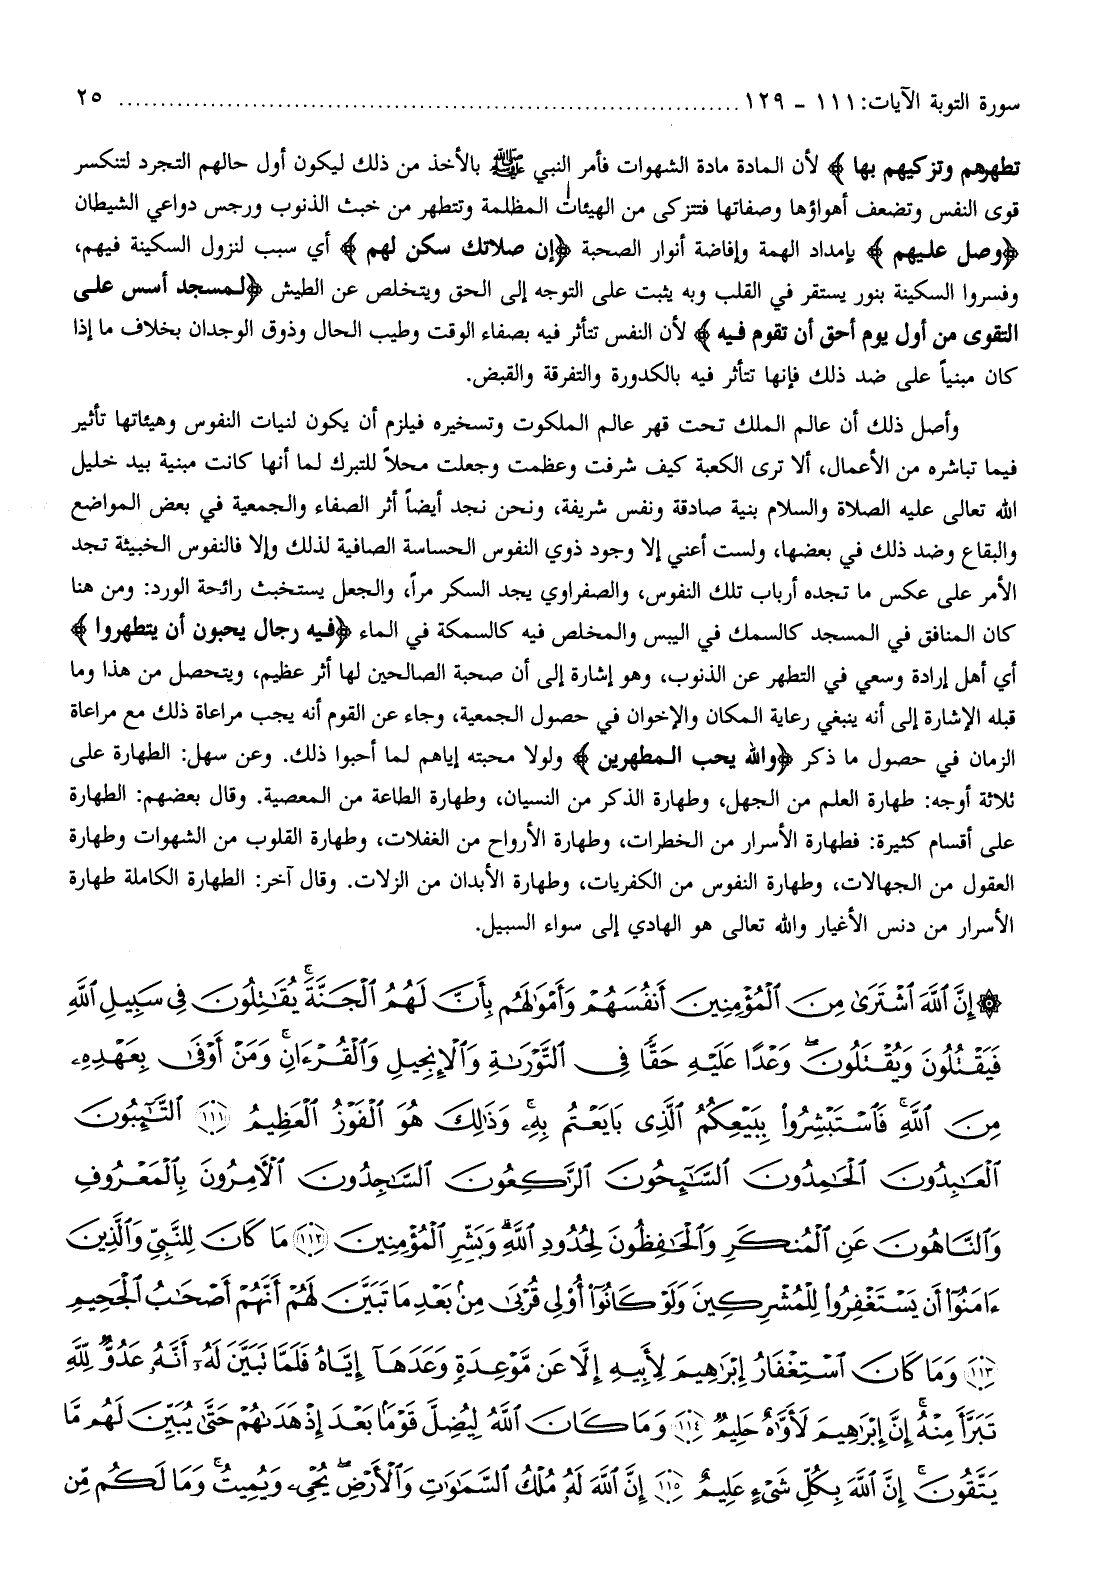 سورة التوبة الآيات: ١١١ - ١٢٩ ........................................................................ ٢٥
تطهرهم وتزكيهم بها ﴾ لأن المادة مادة الشهوات فأمر النبي ﷺ بالأخذ من ذلك ليكون أول حالهم التجرد لتنكسر
قوى النفس وتضعف أهواؤها وصفاتها فتتزكى من الهيئات المظلمة وتتطهر من خبث الذنوب ورجس دواعي الشيطان
﴿وصل عليهم ﴾ بإمداد الهمة وإفاضة أنوار الصحبة ﴿إن صلاتك سكن لهم ﴾ أي سبب لنزول السكينة فيهم،
وفسروا السكينة بنور يستقر في القلب وبه يثبت على التوجه إلى الحق ويتخلص عن الطيش ﴿لمسجد أسس على
التقوى من أول يوم أحق أن تقوم فيه ﴾ لأن النفس تتأثر فيه بصفاء الوقت وطيب الحال وذوق الوجدان بخلاف ما إذا
كان مبنياً على ضد ذلك فإنها تتأثر فيه بالكدورة والتفرقة والقبض.
وأصل ذلك أن عالم الملك تحت قهر عالم الملكوت وتسخيره فيلزم أن يكون لنيات النفوس وهيئاتها تأثير
فيما تباشره من الأعمال، ألا ترى الكعبة كيف شرفت وعظمت وجعلت محلاً للتبرك لما أنها كانت مبنية بيد خليل
الله تعالى عليه الصلاة والسلام بنية صادقة ونفس شريفة، ونحن نجد أيضاً أثر الصفاء والجمعية في بعض المواضع
والبقاع وضد ذلك في بعضها، ولست أعني إلا وجود ذوي النفوس الحساسة الصافية لذلك وإلا فالنفوس الخبيثة تجد
الأمر على عكس ما تجده أرباب تلك النفوس، والصفراوي يجد السكر مراً، والجعل يستخبث رائحة الورد: ومن هنا
كان المنافق في المسجد كالسمك في اليبس والمخلص فيه كالسمكة في الماء ﴿فيه رجال يحبون أن يتطهروا ﴾
أي أهل إرادة وسعي في التطهر عن الذنوب، وهو إشارة إلى أن صحبة الصالحين لها أثر عظيم، ويتحصل من هذا وما
قبله الإشارة إلى أنه ينبغي رعاية المكان والإخوان في حصول الجمعية، وجاء عن القوم أنه يجب مراعاة ذلك مع مراعاة
الزمان في حصول ما ذكر ﴿والله يحب المطهرين ﴾ ولولا محبته إياهم لما أحبوا ذلك. وعن سهل: الطهارة على
ثلاثة أوجه: طهارة العلم من الجهل، وطهارة الذكر من النسيان، وطهارة الطاعة من المعصية. وقال بعضهم: الطهارة
على أقسام كثيرة: فطهارة الأسرار من الخطرات، وطهارة الأرواح من الغفلات، وطهارة القلوب من الشهوات وطهارة
العقول من الجهالات، وطهارة النفوس من الكفريات، وطهارة الأبدان من الزلات. وقال آخر: الطهارة الكاملة طهارة
الأسرار من دنس الأغيار والله تعالى هو الهادي إلى سواء السبيل.
۞ إِنَّ ٱللَّهَ ٱشْتَرَىٰ مِنَ ٱلْمُؤْمِنِينَ أَنفُسَهُمْ وَأَمْوَٰلَهُم بِأَنَّ لَهُمُ ٱلْجَنَّةَ ۚ يُقَٰتِلُونَ فِى سَبِيلِ ٱللَّهِ
فَيَقْتُلُونَ وَيُقْتَلُونَ ۖ وَعْدًا عَلَيْهِ حَقًّا فِى ٱلتَّوْرَىٰةِ وَٱلْإِنجِيلِ وَٱلْقُرْءَانِ ۚ وَمَنْ أَوْفَىٰ بِعَهْدِهِۦ
مِنَ ٱللَّهِ ۚ فَٱسْتَبْشِرُوا۟ بِبَيْعِكُمُ ٱلَّذِى بَايَعْتُم بِهِۦ ۚ وَذَٰلِكَ هُوَ ٱلْفَوْزُ ٱلْعَظِيمُ ١١١ ٱلتَّٰٓئِبُونَ
ٱلْعَٰبِدُونَ ٱلْحَٰمِدُونَ ٱلسَّٰٓئِحُونَ ٱلرَّٰكِعُونَ ٱلسَّٰجِدُونَ ٱلْءَامِرُونَ بِٱلْمَعْرُوفِ
وَٱلنَّاهُونَ عَنِ ٱلْمُنكَرِ وَٱلْحَٰفِظُونَ لِحُدُودِ ٱللَّهِ ۗ وَبَشِّرِ ٱلْمُؤْمِنِينَ ١١٢ مَا كَانَ لِلنَّبِىِّ وَٱلَّذِينَ
ءَامَنُوٓا۟ أَن يَسْتَغْفِرُوا۟ لِلْمُشْرِكِينَ وَلَوْ كَانُوٓا۟ أُو۟لِى قُرْبَىٰ مِنۢ بَعْدِ مَا تَبَيَّنَ لَهُمْ أَنَّهُمْ أَصْحَٰبُ ٱلْجَحِيمِ
١١٣ وَمَا كَانَ ٱسْتِغْفَارُ إِبْرَٰهِيمَ لِأَبِيهِ إِلَّا عَن مَّوْعِدَةٍ وَعَدَهَآ إِيَّاهُ فَلَمَّا تَبَيَّنَ لَهُۥٓ أَنَّهُۥ عَدُوٌّ لِّلَّهِ
تَبَرَّأَ مِنْهُ ۚ إِنَّ إِبْرَٰهِيمَ لَأَوَّٰهٌ حَلِيمٌ ١١٤ وَمَا كَانَ ٱللَّهُ لِيُضِلَّ قَوْمًۢا بَعْدَ إِذْ هَدَىٰهُمْ حَتَّىٰ يُبَيِّنَ لَهُم مَّا
يَتَّقُونَ ۚ إِنَّ ٱللَّهَ بِكُلِّ شَىْءٍ عَلِيمٌ ١١٥ إِنَّ ٱللَّهَ لَهُۥ مُلْكُ ٱلسَّمَٰوَٰتِ وَٱلْأَرْضِ ۖ يُحْىِۦ وَيُمِيتُ ۚ وَمَا لَكُم مِّن